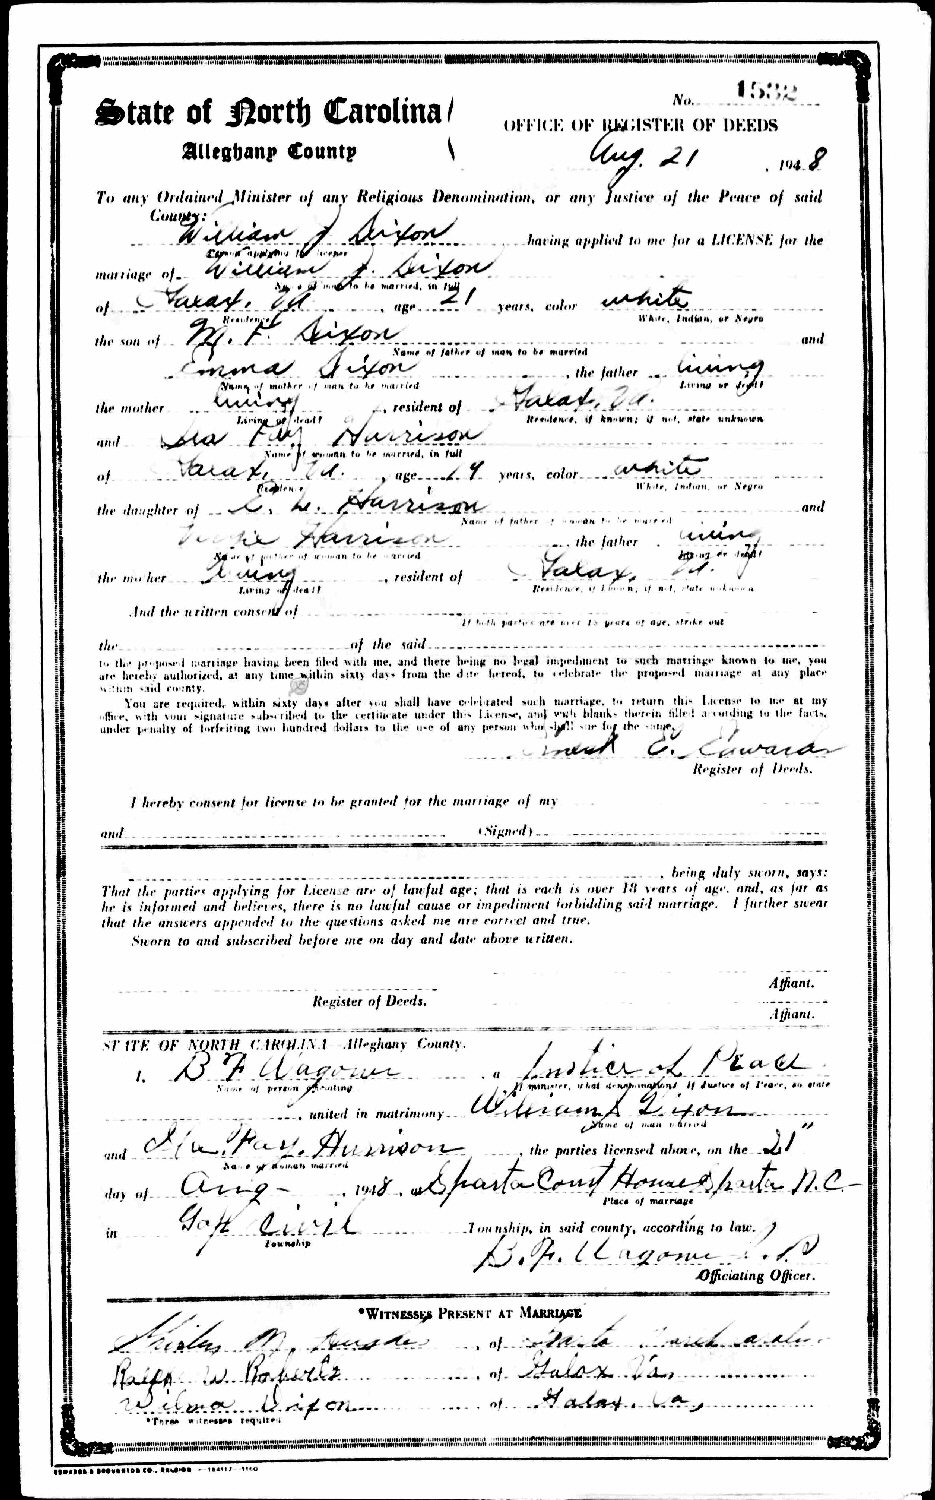 No. 1532
State of North Carolina
OFFICE OF REGISTER OF DEEDS
Alleghany County
Aug. 21, 1948
To any Ordained Minister of any Religious Denomination, or any Justice of the Peace of said
County:
William J Dixon having applied to me for a LICENSE for the
Person applying for license
marriage of William J. Dixon
Name of man to be married, in full
of Galax, Va., age 21 years, color white
Residence White, Indian, or Negro
the son of M. F. Dixon and
Name of father of man to be married
Emma Dixon, the father living
Name of mother of man to be married Living or dead?
the mother living, resident of Galax, Va.
Living or dead? Residence, if known; if not, state unknown
and Fay Harrison
Name of woman to be married, in full
of Galax, Va., age 19 years, color white
Residence White, Indian, or Negro
the daughter of C. L. Harrison and
Name of father of woman to be married
Harrison, the father living
Name of mother of woman to be married Living or dead?
the mother living, resident of Galax, Va.
Living or dead? Residence, if known; if not, state unknown
And the written consent of
If both parties are over 18 years of age, strike out
the of the said
to the proposed marriage having been filed with me, and there being no legal impediment to such marriage known to me, you
are hereby authorized, at any time within sixty days from the date hereof, to celebrate the proposed marriage at any place
within said county.
You are required, within sixty days after you shall have celebrated such marriage, to return this License to me at my
office, with your signature subscribed to the certificate under this License, and with blanks therein filled according to the facts,
under penalty of forfeiting two hundred dollars to the use of any person who shall sue for the same.
Ernest E. Edwards
Register of Deeds.
I hereby consent for license to be granted for the marriage of my
and (Signed)
, being duly sworn, says:
That the parties applying for License are of lawful age; that is each is over 18 years of age, and, as far as
he is informed and believes, there is no lawful cause or impediment forbidding said marriage. I further swear
that the answers appended to the questions asked me are correct and true.
Sworn to and subscribed before me on day and date above written.
Affiant.
Register of Deeds.
Affiant.
STATE OF NORTH CAROLINA Alleghany County.
I, B F Wagoner a Justice of Peace
Name of person officiating If minister, what denomination? If Justice of Peace, so state
, united in matrimony William J Dixon
Name of man married
and Fay Harrison, the parties licensed above, on the 21"
Name of woman married
day of Aug, 1948, at Sparta Court House Sparta N.C.
Place of marriage
in Gap Civil Township, in said county, according to law.
Township
B. F. Wagoner J. P
Officiating Officer.
*WITNESSES PRESENT AT MARRIAGE
M, of Sparta North Carolina
Ralph W Roberts, of Galax Va,
Wilma Dixon, of Galax, Va,
*Three witnesses required
EDWARDS & BROUGHTON CO., RALEIGH